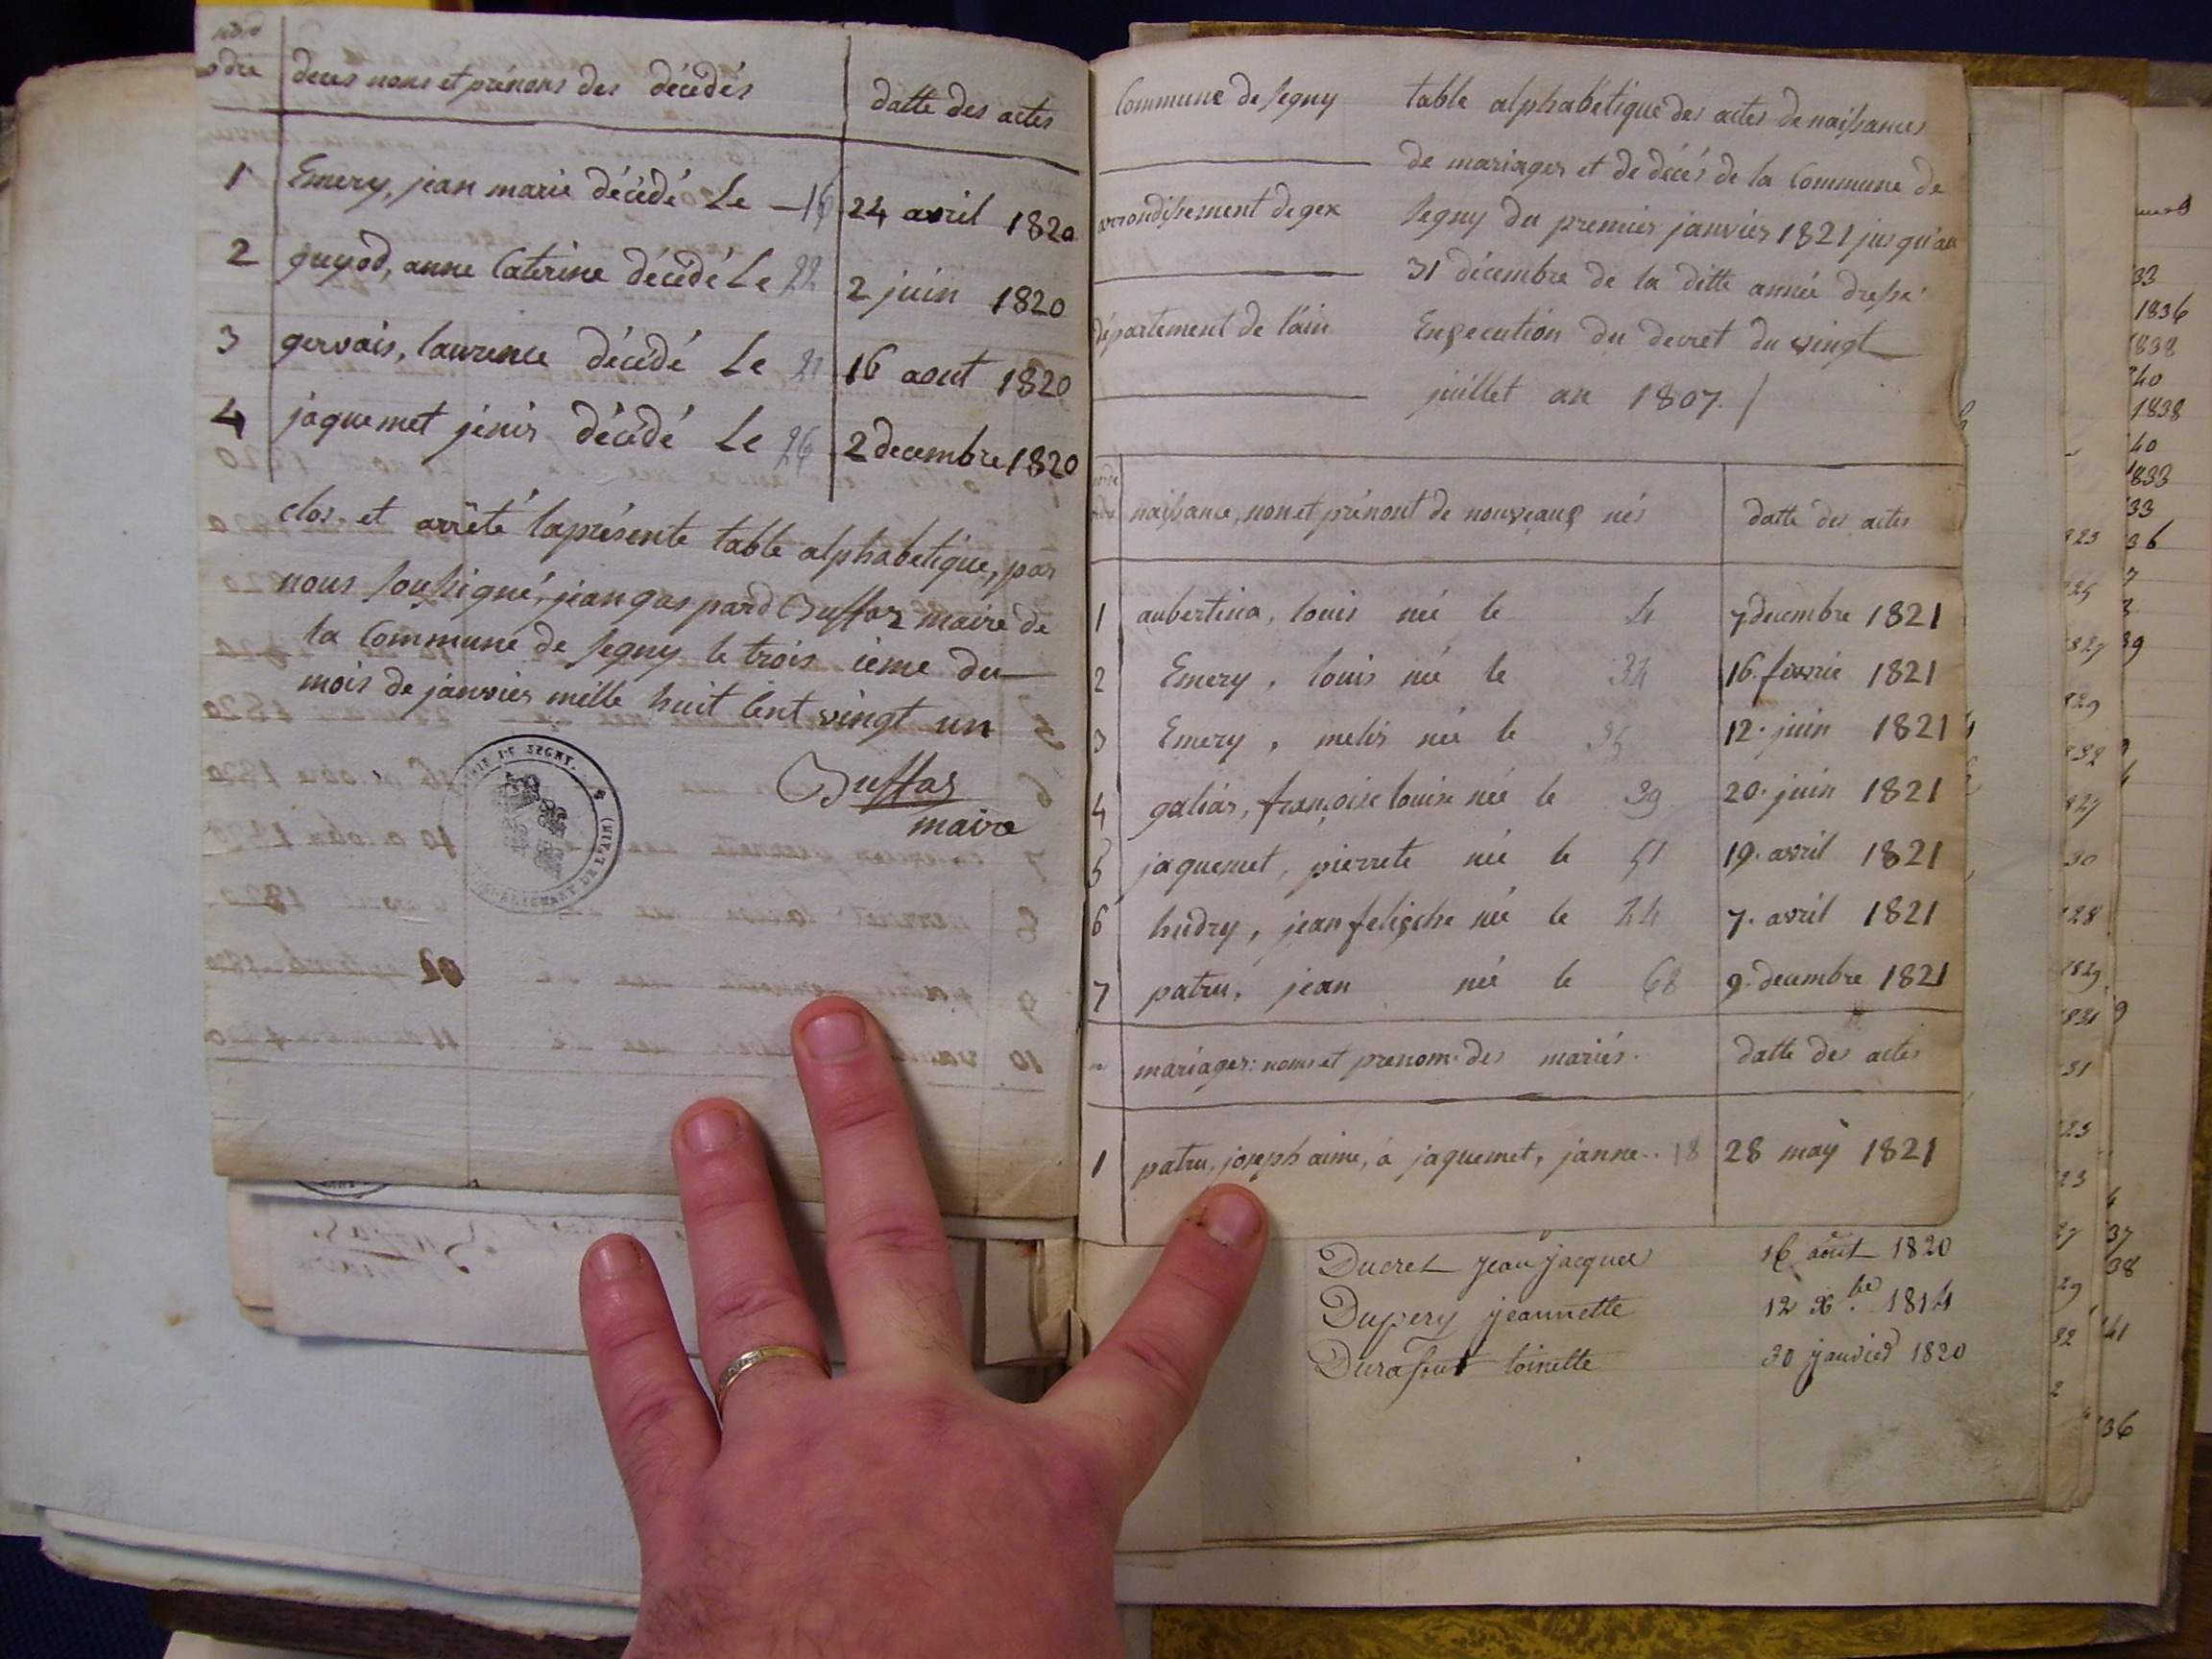 deces noms et prénoms des décédés
datte des actes
1 Emery, jean marie décédé Le 16 24 avril 1820
2 guyod, anne Caterine décédé Le 22 2 juin 1820
3 gervais, laurence décédé Le 21 16 aout 1820
4 jaquemet jenis décédé Le 26 2 decembre 1820
clos et arrêté laprésente table alphabetique, par
nous soussigné, jean gaspard Buffaz maire de
la Commune de Segny le trois ieme du
mois de janvier mille huit Cent vingt un
Buffaz
maire
DE SEGNY.
DE L'AIN)
Commune de Segny
arrondissement de gex
département de l'ain
table alphabétique des actes de naissances
de mariages et de décés de la Commune de
Segny du premier janvier 1821 jusqu'au
31 décembre de la ditte année dressé
Enxecution du decret du vingt
juillet an 1807. /
naissance, non et prénont de nouveaux nés
datte des actes
1 aubertina, louis né le 4 7 decembre 1821
2 Emery, louis né le 34 16. fevrie 1821
3 Emery, melis né le 35 12. juin 1821
4 galias, françoise louise née le 39 20. juin 1821
5 jaquemet, pierrete née le 51 19. avril 1821
6 hudry, jean felixche né le 44 7. avril 1821
7 patru, jean né le 68 9. decembre 1821
mariages: noms et prenom des mariés.
datte des actes
1 patru, joseph aimé, à jaquemet, janne.. 18 28 may 1821
Ducret Jean Jacques 16 août 1820
Dupery jeannette 12 Xbre 1814
Durafour toinette 30 janvier 1820
33
1836
1838
40
1838
40
1833
33
36
39
37
38
41
36